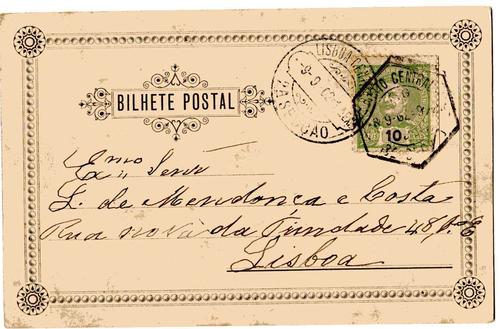 BILHETE POSTAL
LISBOA
9-9 02
SECÇÃO
CENTRAL
9-9-02
10
Exmo Senr
L. de Mendonça e Costa
Rua nova da Trindade 48, 1º E
Lisboa